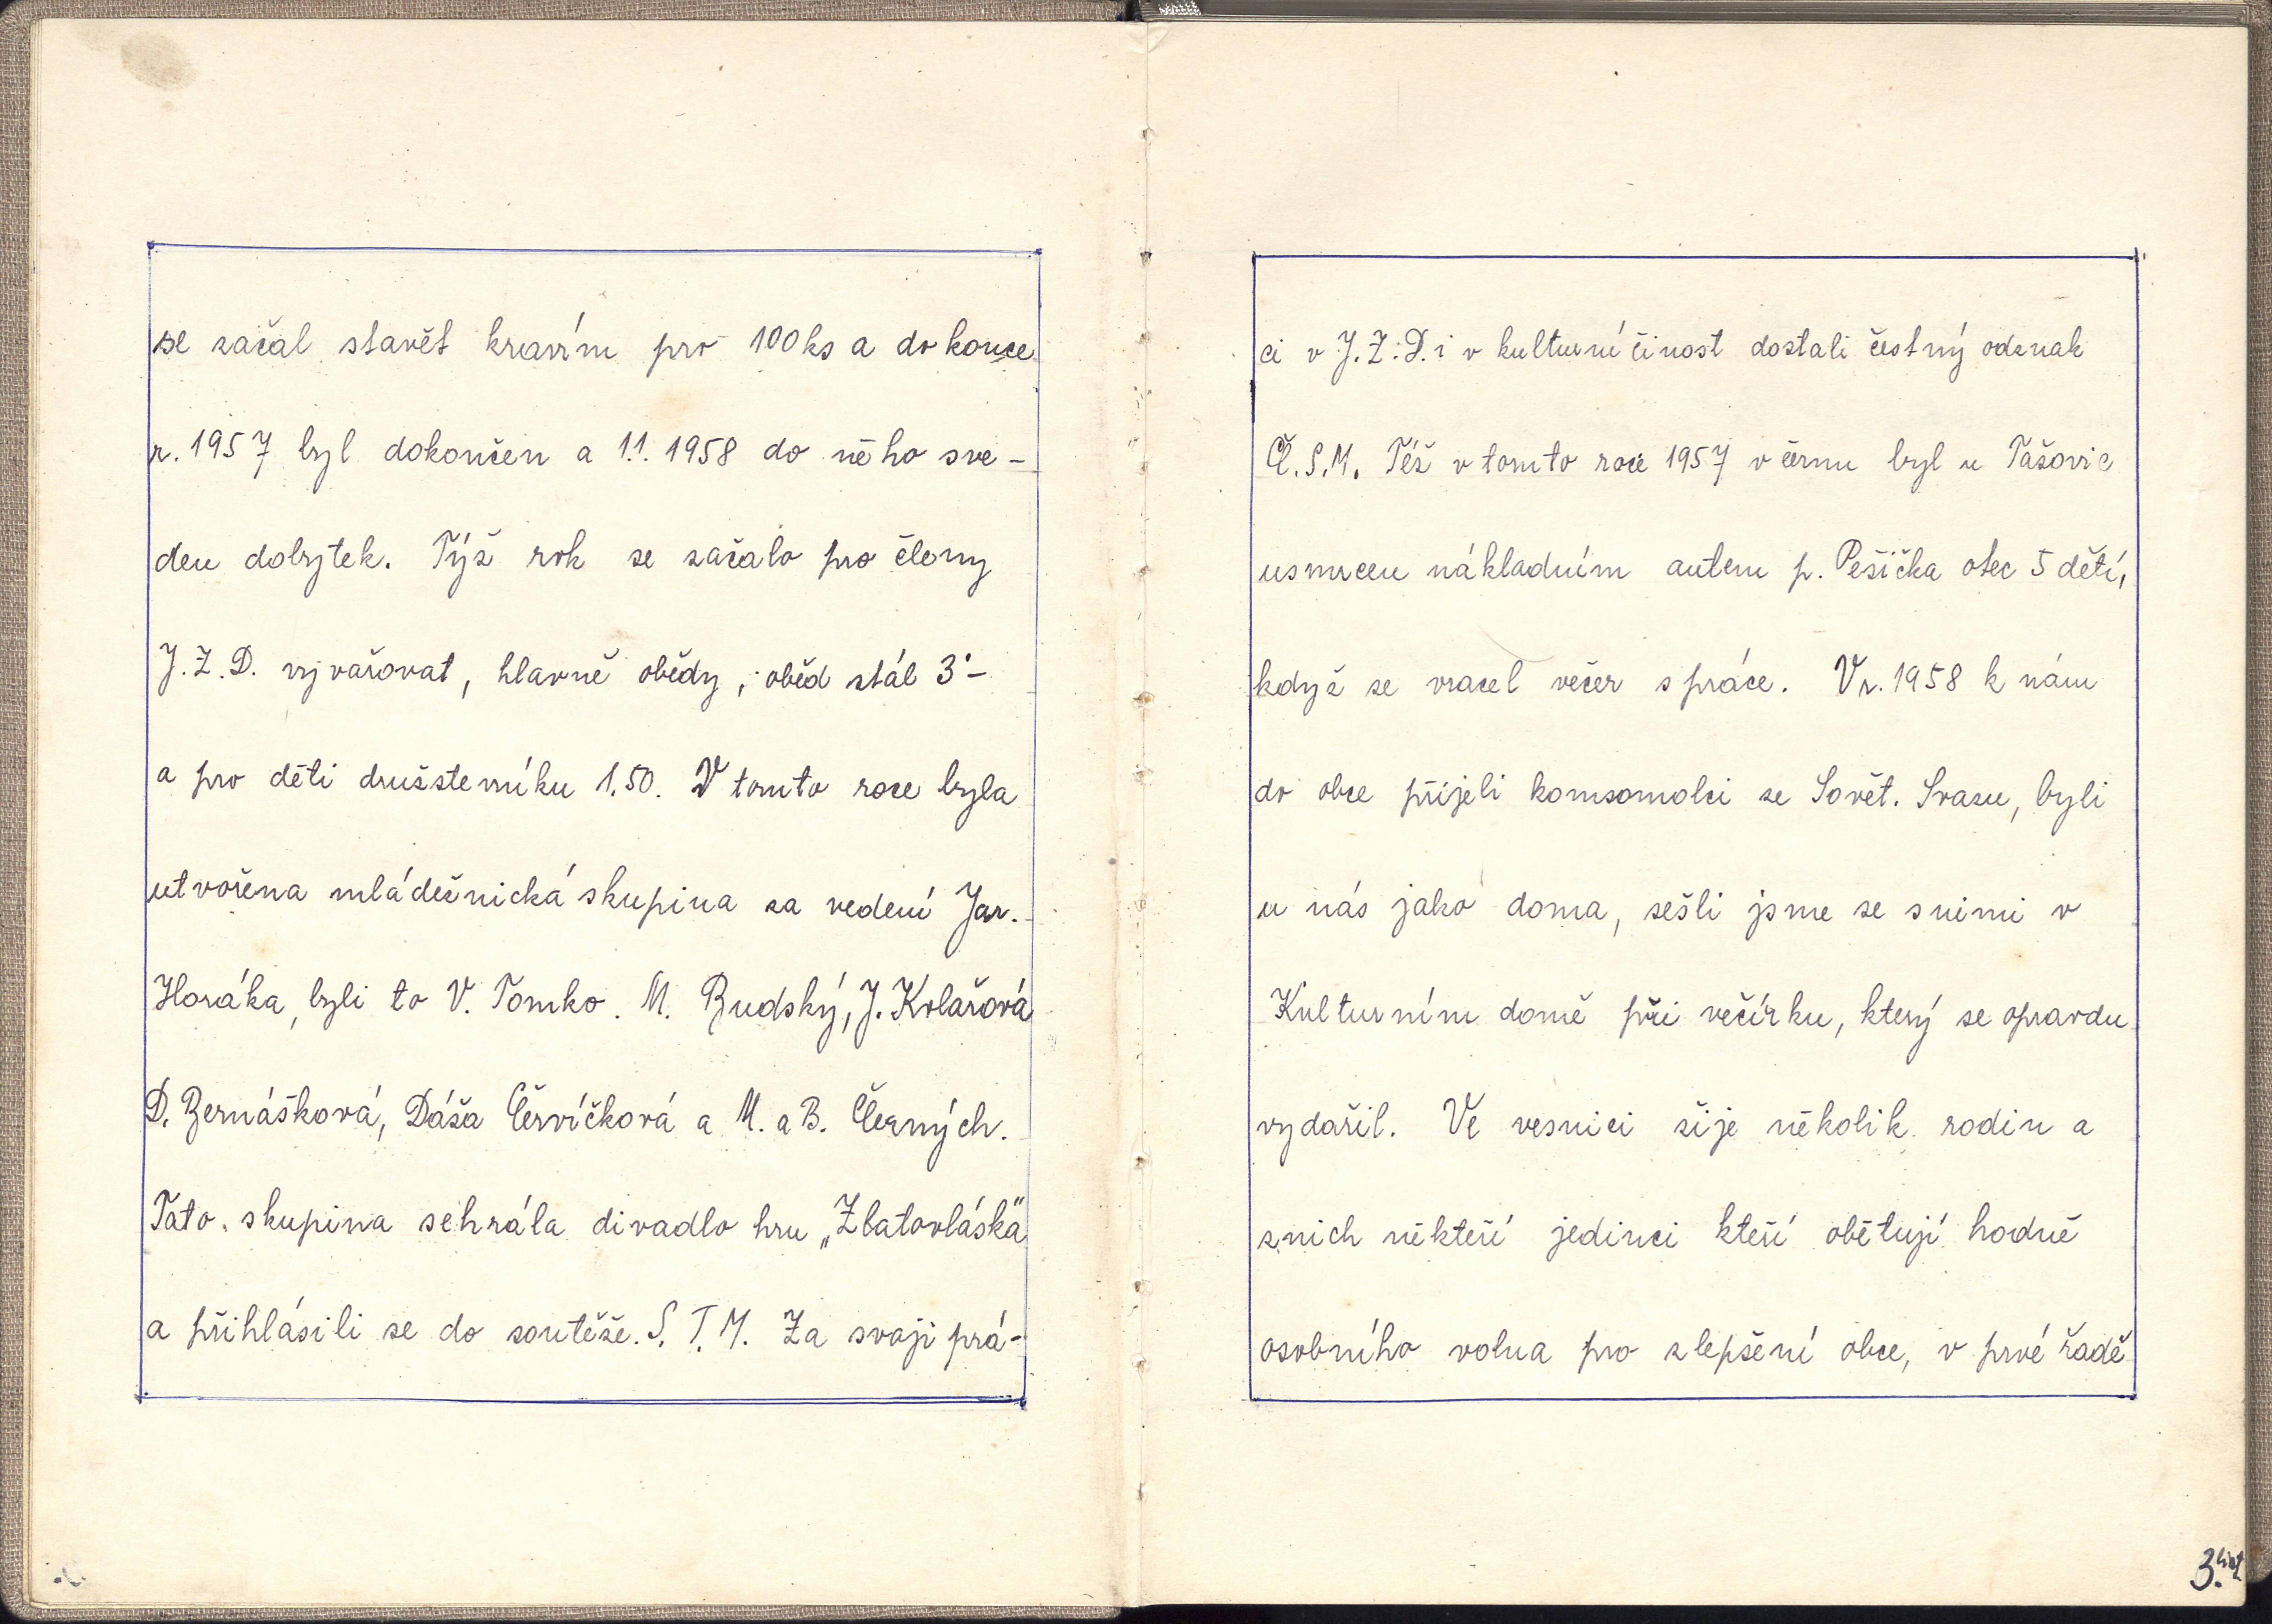 se začal stavět kravím pro 100 ks a do konce
r. 1957 byl dokončen a 1.1. 1958 do něho sve-
den dobytek. Týž rok se začalo pro členy
J.Z.D. vyvařovat, hlavně obědy, oběd stál 3'-
a pro děti družsterníku 1.50. V tomto roce byla
utvořena mládežnická skupina za vedení Jar.
Horáka, byli to V. Tomko. M. Budský, J. Kolařová
D. Bernášková, Dáša Červíčková a M. a B. Černých.
Tato skupina sehrála divadlo hru „Zlatovláska"
a přihlásili se do soutěže. S.T.M. Za svoji prá-
ci v J.Z.D. i v kulturní činost dostali čestný odznak
Č.S.M. Též v tomto roce 1957 v černu byl u Tašovic
usmrcen nákladním autem p. Pešička otec 5 dětí,
když se vracel večer s práce. V r. 1958 k nám
do obce přijeli komsomolci se Sovět. Svazu, byli
u nás jako doma, sešli jsme se snimi v
Kulturním domě při večírku, který se opravdu
vydařil. Ve vesnici žije několik rodin a
znich někteří jedinci kteří obětují hodně
osobního volna pro zlepšení obce, v prvé řadě
3. list